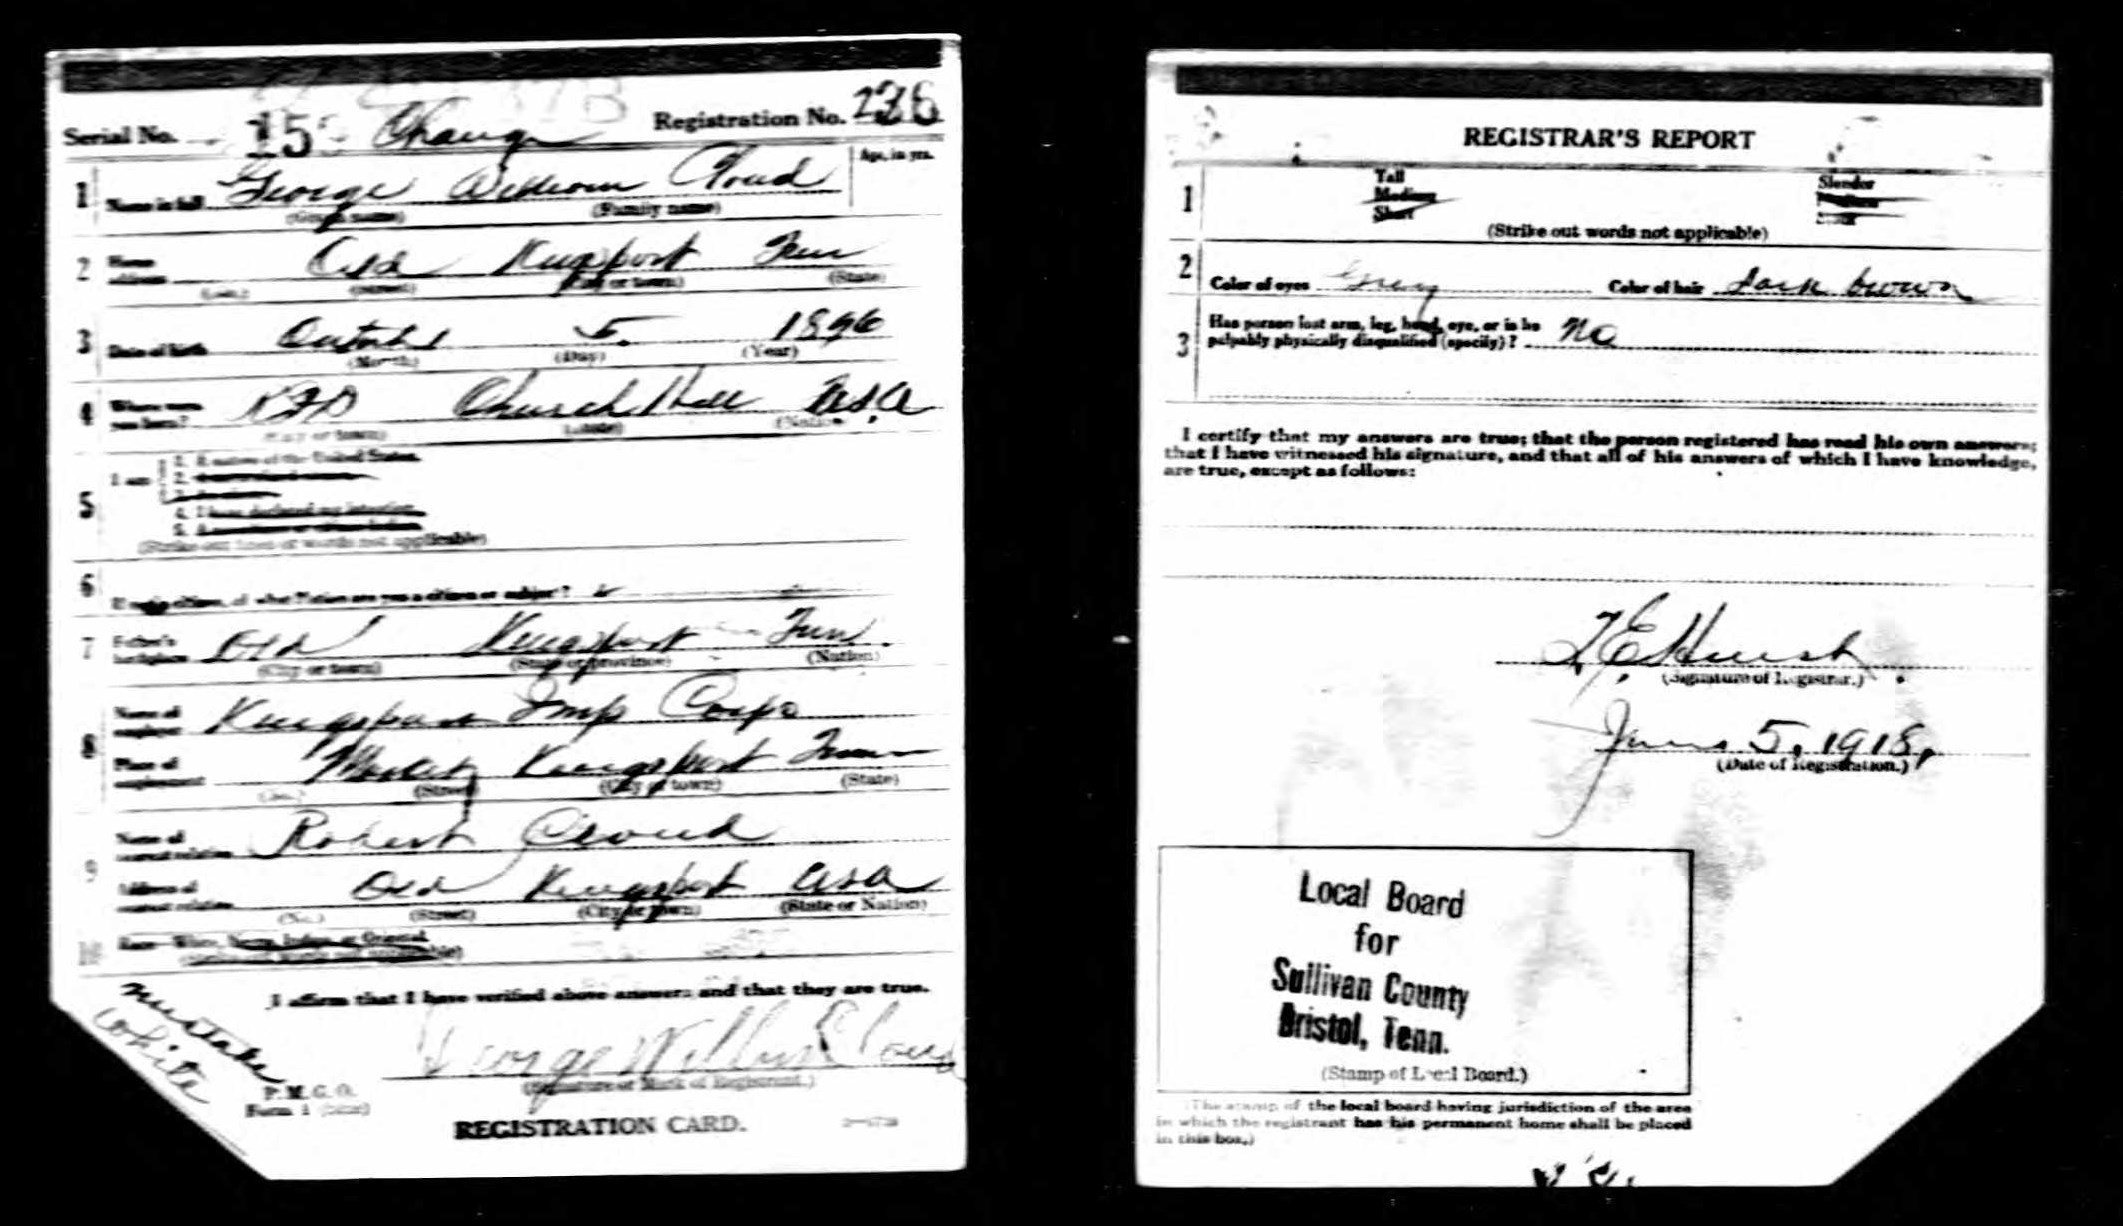 Serial No. 15 Change Registration No. 226
1 Name in full George William Cloud Age, in yrs.
(Given name) (Family name)
2 Home address Old Kingsport Tenn
(No.) (Street) (City or town) (State)
3 Date of birth 5. 1896
(Month) (Day) (Year)
4 Where were you born? RFD Church Hill USA
(City or town) (State) (Nation)
5 I am 1. A native of the United States.
2.
3.
4. I have declared my intention.
5.
(Strike out lines or words not applicable)
6 If not a citizen, of what Nation are you a citizen or subject?
7 Father's birthplace Old Kingsport Tenn.
(City or town) (State or province) (Nation)
8 Name of employer Kingsport Imp Corp
Place of employment Market Kingsport Tenn
(No.) (Street) (City or town) (State)
9 Name of nearest relative Robert Cloud
Address of nearest relative Old Kingsport USA
(No.) (Street) (City or town) (State or Nation)
10 Race—White, Negro, Indian, or Oriental.
(Strike out words not applicable)
I affirm that I have verified above answers and that they are true.
mistake
White
George William Cloud
(Signature or Mark of Registrant.)
P. M. G. O.
Form 1 (blue)
REGISTRATION CARD.
REGISTRAR'S REPORT
1 Tall Slender
Medium Medium
Short Stout
(Strike out words not applicable)
2 Color of eyes Grey Color of hair dark brown
3 Has person lost arm, leg, hand, eye, or is he
palpably physically disqualified (specify)? No
I certify that my answers are true; that the person registered has read his own answers;
that I have witnessed his signature, and that all of his answers of which I have knowledge,
are true, except as follows:
T. E. Hurst
(Signature of Registrar.)
June 5, 1918,
(Date of Registration.)
Local Board
for
Sullivan County
Bristol, Tenn.
(Stamp of Local Board.)
(The stamp of the local board having jurisdiction of the area
in which the registrant has his permanent home shall be placed
in this box.)